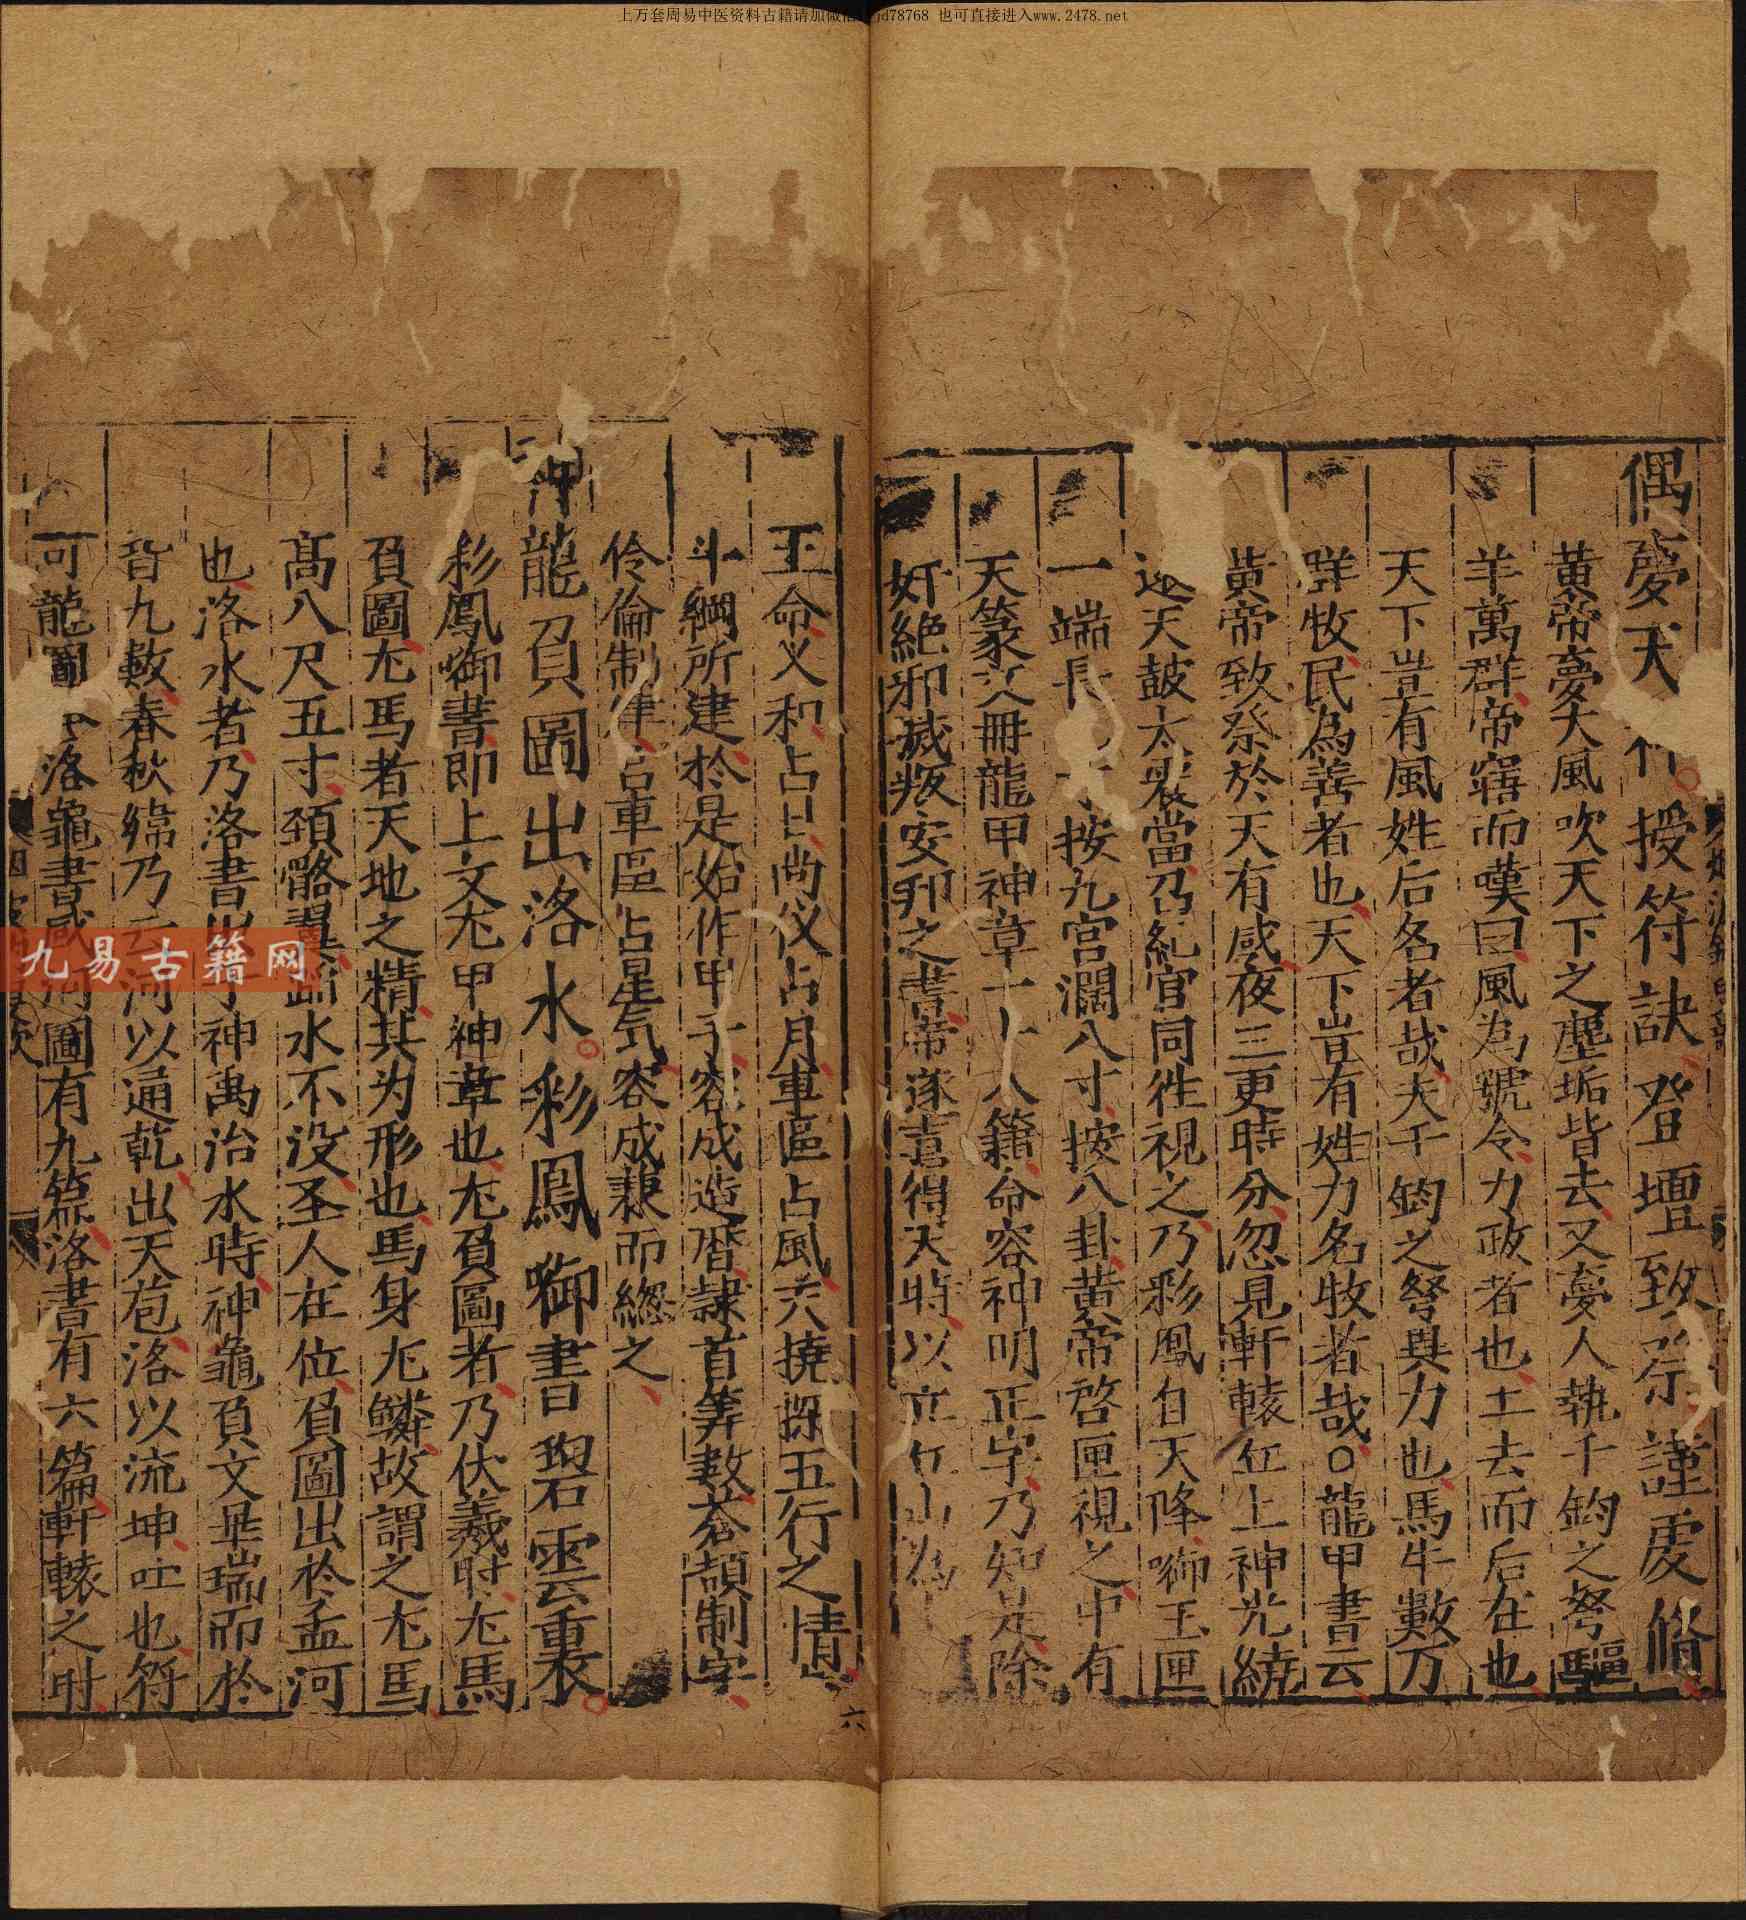 上万套周易中医资料古籍请加微信 jd78768 也可直接进入www.2478.net
偶夢天 授符訣登壇致祭謹虔修
黄帝夢大風吹天下之塵垢皆去又夢人執千鈞之弩驅
羊萬群帝寤而嘆曰風為號令力政者也土去而后在也
天下豈有風姓后名者哉夫千鈞之弩與力也馬牛數万
群牧民為善者也天下豈有姓力名牧者哉○龍甲書云
黄帝致祭於天有感夜三更時分忽見軒轅丘上神光繞
天鼓太 當乃糺官同徃視之乃彩鳳自天降啣玉匣
一端長 寸按九宫濶八寸按八卦黄帝啓匣視之中有
天篆文冊龍甲神章十 籍命容神明正字乃知是除
奸絶邪㓕叛安邦之書帝遂喜得天時以立
王命义和占日尚仪占月車區占風大撓探五行之情占
斗綱所建於是始作甲子容成造曆隷首筭数蒼頡制字
伶倫制律 車區占星气容成兼而緫之
神龍負圖出洛水彩鳳啣書碧雲裏
彩鳳啣書即上文尨甲神章也尨負圖者乃伏羲时尨馬
負圖尨馬者天地之精其为形也馬身尨鱗故謂之尨馬
高八尺五寸頚骼 水不没圣人在位負圖出於孟河
也洛水者乃洛書 神禹治水時神龜負文是瑞而於
背九數春秋緯乃云河以通乾出天苞洛以流坤吐也符
可龍圖 洛龜書感河圖有九篇洛書有六篇軒轅之时
六
九易古籍网